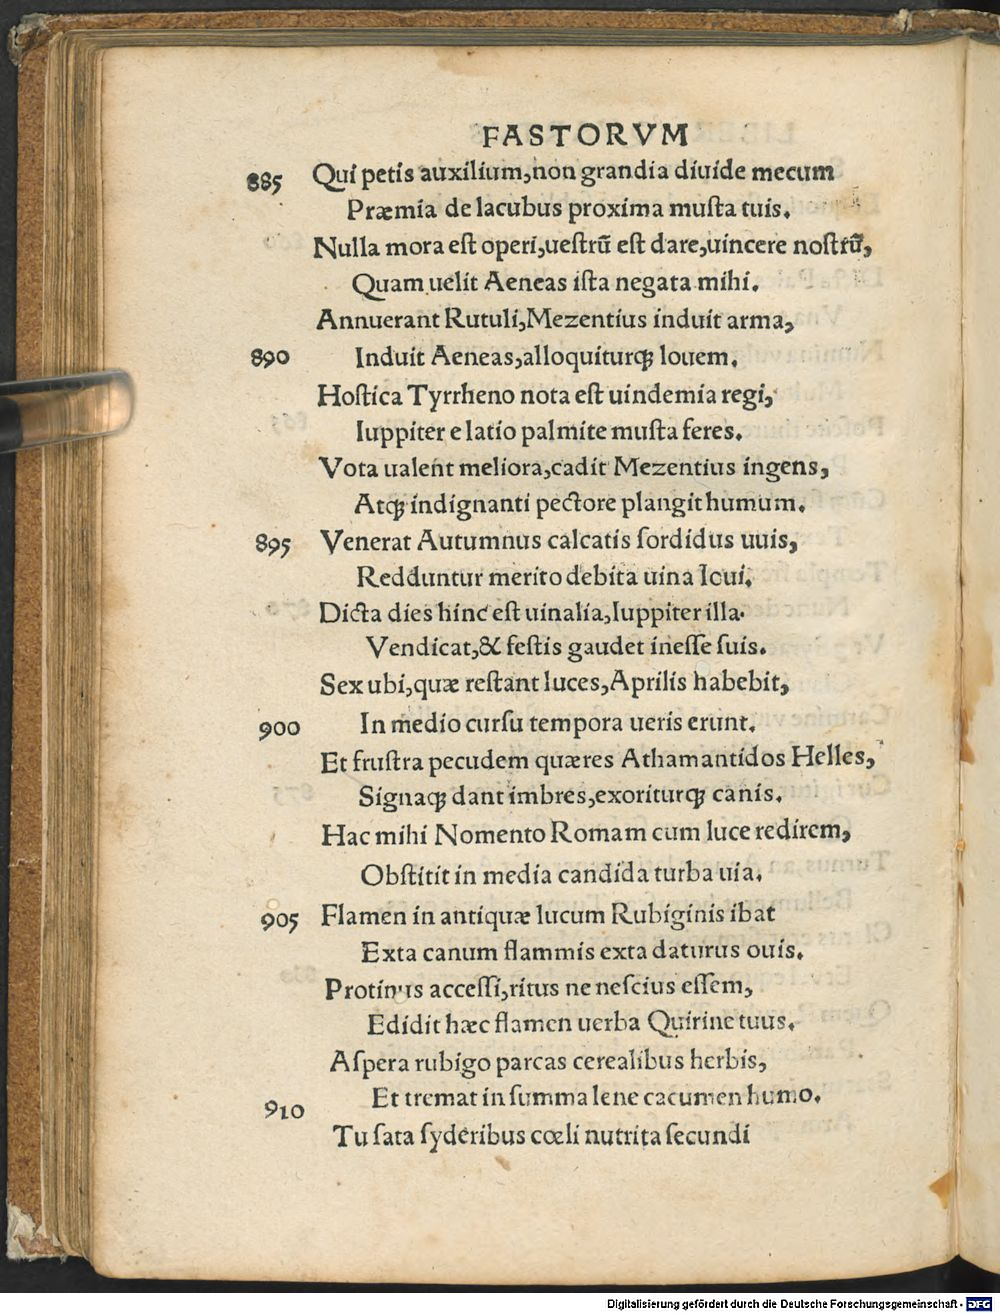 FASTORVM
885 Qui petis auxilium,non grandia diuide mecum
Præmia de lacubus proxima musta tuis.
Nulla mora est operi,uestrũ est dare,uincere nostrũ,
Quam uelit Aeneas ista negata mihi.
Annuerant Rutuli,Mezentius induit arma,
890 Induit Aeneas,alloquiturqꝫ Iouem.
Hostica Tyrrheno nota est uindemia regi,
Iuppiter e latio palmite musta feres.
Vota ualent meliora,cadit Mezentius ingens,
Atqꝫ indignanti pectore plangit humum.
895 Venerat Autumnus calcatis sordidus uuis,
Redduntur merito debita uina Ioui.
Dicta dies hinc est uinalia,Iuppiter illa.
Vendicat,& festis gaudet inesse suis.
Sex ubi,quæ restant luces,Aprilis habebit,
900 In medio cursu tempora ueris erunt.
Et frustra pecudem quæres Athamantidos Helles,
Signaqꝫ dant imbres,exoriturqꝫ canis.
Hac mihi Nomento Romam cum luce redirem,
Obstitit in media candida turba uia.
905 Flamen in antiquæ lucum Rubiginis ibat
Exta canum flammis exta daturus ouis.
Protinus accessi,ritus ne nescius essem,
Edidit hæc flamen uerba Quirine tuus.
Aspera rubigo parcas cerealibus herbis,
910 Et tremat in summa lene cacumen humo.
Tu sata syderibus cœli nutrita secundi
Digitalisierung gefördert durch die Deutsche Forschungsgemeinschaft - DFG